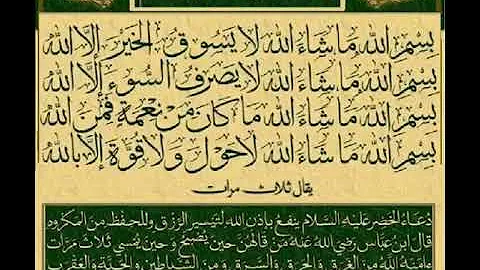 بِسْمِ اللهِ مَا شَاءَ اللهُ لَا يَسُوقُ الْخَيْرَ إِلَّا اللهُ
بِسْمِ اللهِ مَا شَاءَ اللهُ لَا يَصْرِفُ السُّوءَ إِلَّا اللهُ
بِسْمِ اللهِ مَا شَاءَ اللهُ مَا كَانَ مِنْ نِعْمَةٍ فَمِنَ اللهِ
بِسْمِ اللهِ مَا شَاءَ اللهُ لَا حَوْلَ وَلَا قُوَّةَ إِلَّا بِاللهِ
يقال ثلاث مرات
دُعَاءُ الْخَضِرِ عَلَيْهِ السَّلَام يَنْفَعُ بِإِذْنِ اللهِ لِتَيْسِيرِ الرِّزْقِ وَلِلْحِفْظِ مِنَ الْمَكْرُوهِ
قَالَ ابْنُ عَبَّاسٍ رَضِيَ اللهُ عَنْهُ مَنْ قَالَهُنَّ حِينَ يُصْبِحُ وَحِينَ يُمْسِي ثَلَاثَ مَرَّاتٍ
مِنَ الْغَرَقِ وَالْحَرَقِ وَالسَّرَقِ وَمِنَ الشَّيَاطِينِ وَالْحَيَّةِ وَالْعَقْرَبِ